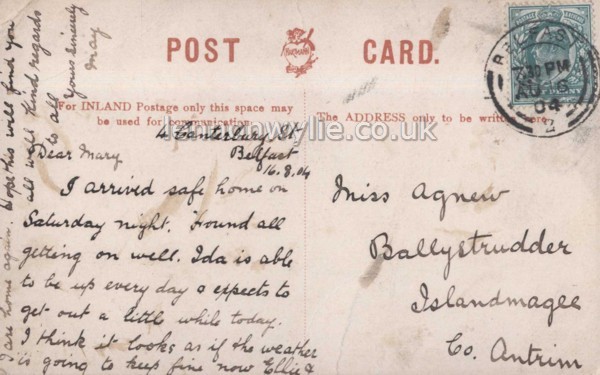 POST CARD.
For INLAND Postage only this space may
be used for communication.
The ADDRESS only to be written here.
4 Canterbury St
Belfast
16.8.04
Dear Mary
I arrived safe home on
Saturday night. Found all
getting on well. Ida is able
to be up every day & expects to
get out a little while today.
I think it looks as if the weather
is going to keep fine now Ellie &
I are home again. Hope this will find you
all well Kind regards
to all
Yours Sincerely
May
Miss Agnew
Ballystrudder
Islandmagee
Co. Antrim
BELFAST
7.30 PM
AU 16
04
2
lennonwylie.co.uk